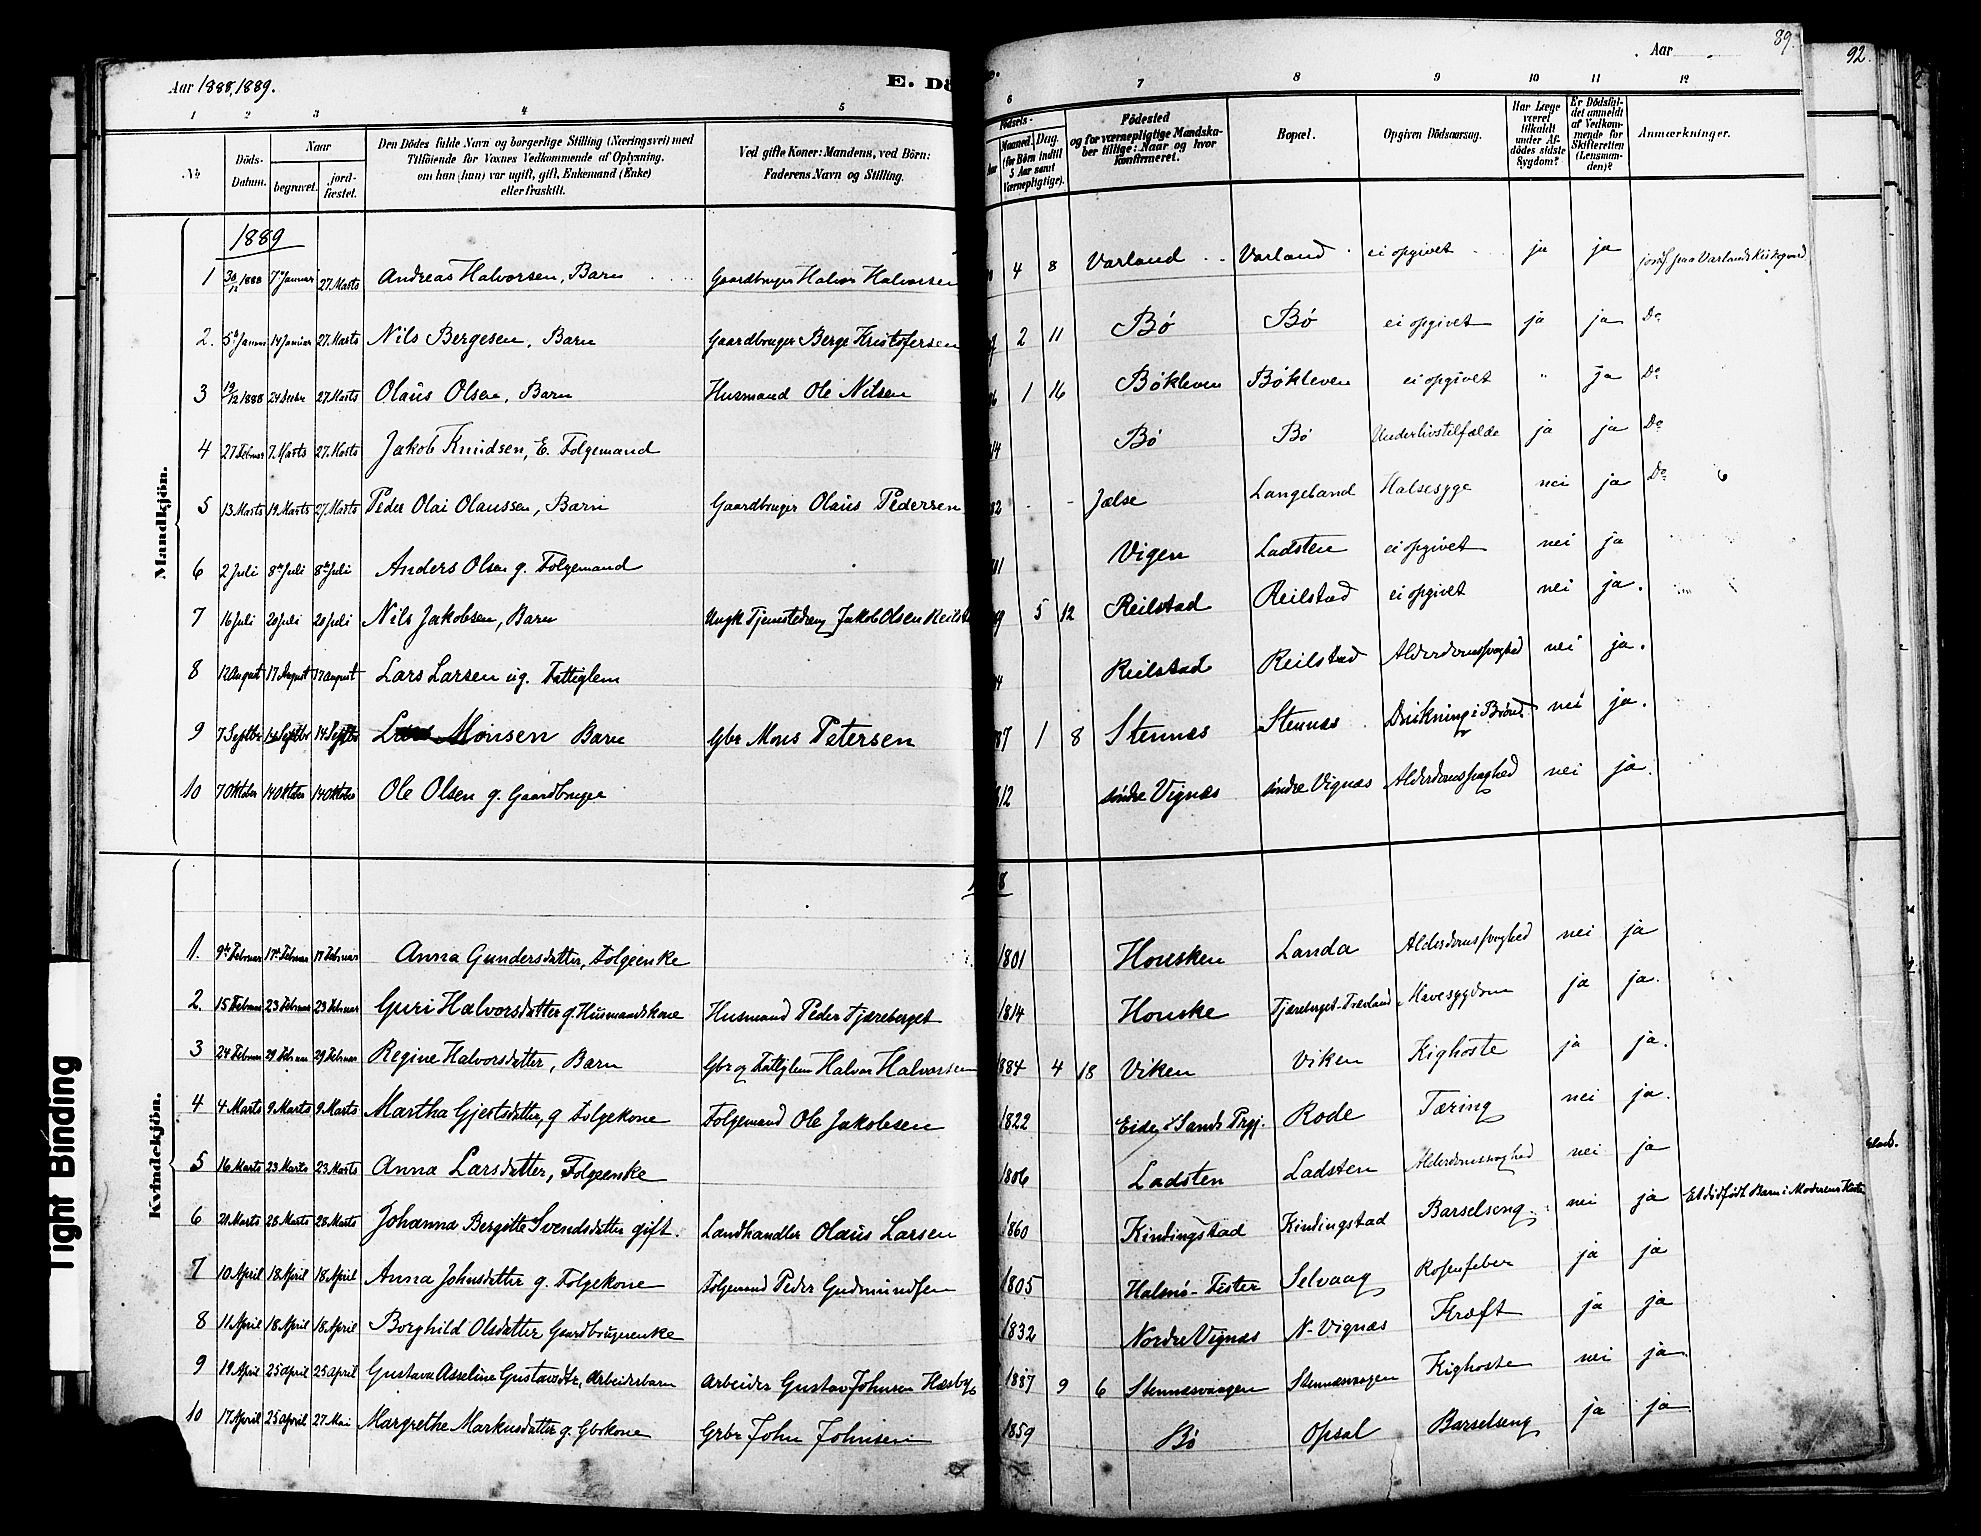 Aar 1888, 1889.
E. Dö
Aar
89.
92.
1 2 3 4 5 6 7 8 9 10 11 12
№
Döds-Datum.
Naar
begravet.
jord-fæstet.
Den Dödes fulde Navn og borgerlige Stilling (Næringsvei) med
Tilföiende for Voxnes Vedkommende af Oplysning,
om han (hun) var ugift, gift, Enkemand (Enke)
eller fraskilt.
Ved gifte Koner: Mandens, ved Börn:
Faderens Navn og Stilling.
Födsels-
Maaned. Dag.
(for Börn indtil 5 Aar samt Værnepligtige).
Födested
og for værnepligtige Mandska-
ber tillige: Naar og hvor
konfirmeret.
Bopæl.
Opgiven Dödsaarsag.
Har Læge været tilkaldt under Afdödes sidste Sygdom?
Er Dödsfaldet anmeldt af Vedkommende for Skifteretten (Lensmanden)?
Anmærkninger.
Mandkjön.
1889
1 30/12 1888 7de Januar 27. Marts Andreas Halvorsen, Barn Gaardbruger Halvor Halvorsen 4 8 Varland Varland ei opgivet ja ja jordf. paa Varlands Kirkegaard
2. 5te Januar 14 Januar 27. Marts Nils Bergesen, Barn Gaardbruger Berge Kristofersen 2 11 Bø Bø ei opgivet ja ja Do
3 19/12 1888 24 Decbr 27. Marts Olaus Olsen, Barn Husmand Ole Nilsen 1 16 Bøkleven Bøkleven ei opgivet " ja Do
4 27 Februar 7. Marts 27. Marts Jakob Knudsen, E. Folgemand 14 Bø Bø Underlivstilfælde ja ja Do
5 13 Marts 19 Marts 27. Marts Peder Olai Olaussen, Barn Gaardbruger Olaus Pedersen 82 - - Jælse Langeland Halsesyge nei ja Do 6
6 2 Juli 8de Juli 8de Juli Anders Olsen g. Folgemand 01 Vigen Ladsten ei opgivet nei ja
7 16 Juli 20 Juli 20 Juli Nils Jakobsen, Barn Ungk Tjenestedreng Jakob Olsen Reilstad 9 5 12 Reilstad Reilstad ei opgivet nei ja.
8 12 August 17 August 17 August Lars Larsen ug. Fattiglem Reilstad Reilstad Alderdomssvaghed nei ja.
9 7 Septbr 14 Septbr 14 Septbr Lars Monsen Barn Gbr Mons Petersen 87 1 8 Stennæs Stennæs Drukning i Brønd nei ja.
10 7 Oktober 14 Oktober 14 Oktober Ole Olsen g. Gaardbruger 12 søndre Vignæs søndre Vignæs Alderdomssvaghed nei ja.
Kvindekjön.
8
1. 9de Februar 17de Februar 17 Februar Anna Gundersdatter, Folgeenke 1801 Housken Landa Alderdomssvaghed nei ja
2. 15 Februar 23 Februar 23 Februar Guri Halvorsdatter g. Husmandskone Husmand Peder Tjæreberget 1814 Houske Tjæreberget-Træland Mavesygdom ja ja.
3 24 Februar 29 Februar 29 Februar Regine Halvorsdatter, Barn Gbr og Fattiglem Halvor Halvorsen 1884 4 18 Viken Viken Kighoste ja ja.
4 4 Marts 9 Marts 9 Marts Martha Gjertsdatter, g Folgekone Folgemand Ole Jakobsen 1822 Eide, i Sands Prgj. Rode Tæring nei ja.
5 16 Marts 23 Marts 23 Marts Anna Larsdatter, Folgeenke 1806 Ladsten Ladsten Alderdomssvaghed nei ja
6 21 Marts 28 Marts 28 Marts Johanna Bergitte Svendsdatter gift. Landhandler Olaus Larsen 1860 Kindingstad Kindingstad Barselseng. nei ja Et dødfødt Barn i Moderens Kiste
7 10 April 18 April 18 April Anna Johnsdatter g. Folgekone Folgemand Peder Gudmundsen 1805 Halsnø-Fister Selvaag Rosenfeber ja ja
8 11 April 18 April 18 April Borghild Olsdatter Gaardbrugerenke 1832 Nordre Vignæs N-Vignæs Kræft ja ja
9 19 April 25 April 25 April Gustava Asseline Gustavsdtr, Arbeidsbarn Arbeider Gustav Johnsen 1887 9 6 Stennæsvaagen Stennæsvaagen Kighoste nei ja.
10 17 April 25 April 27 Mai Margrethe Markusdatter g. Gbrkone Grbr John Johnsen 1859 Bø Opsal Barselseng ja ja
Tight Binding